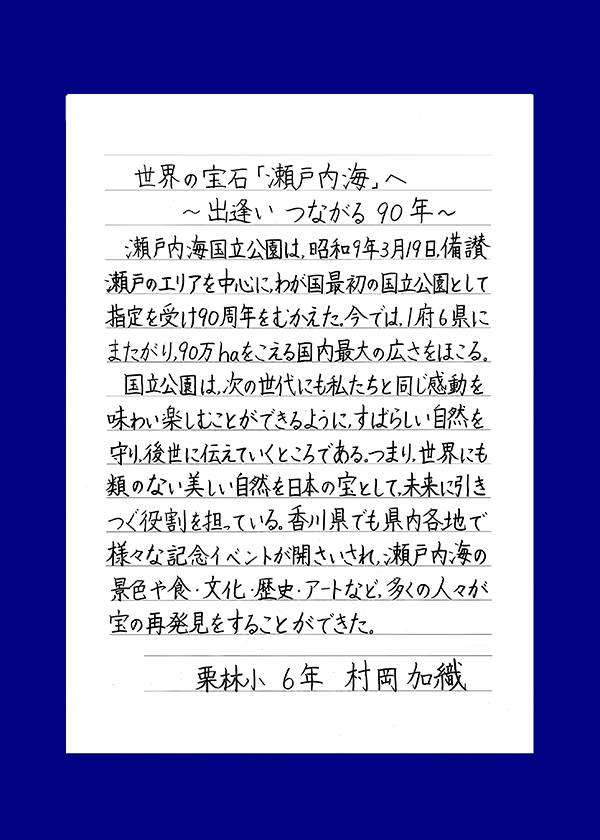 世界の宝石「瀬戸内海」へ
～出逢い つながる 90年～
瀬戸内海国立公園は、昭和9年3月19日、備讃
瀬戸のエリアを中心に、わが国最初の国立公園として
指定を受け90周年をむかえた。今では、1府6県に
またがり、90万haをこえる国内最大の広さをほこる。
国立公園は、次の世代にも私たちと同じ感動を
味わい楽しむことができるように、すばらしい自然を
守り、後世に伝えていくところである。つまり、世界にも
類のない美しい自然を日本の宝として、未来に引き
つぐ役割を担っている。香川県でも県内各地で
様々な記念イベントが開さいされ、瀬戸内海の
景色や食・文化・歴史・アートなど、多くの人々が
宝の再発見をすることができた。
栗林小 6年 村岡 加織